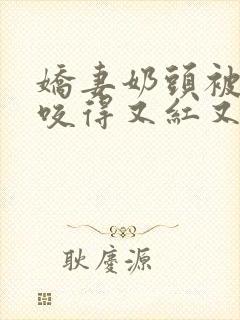 嬌妻奶頭被
咬得又紅又
耿慶源